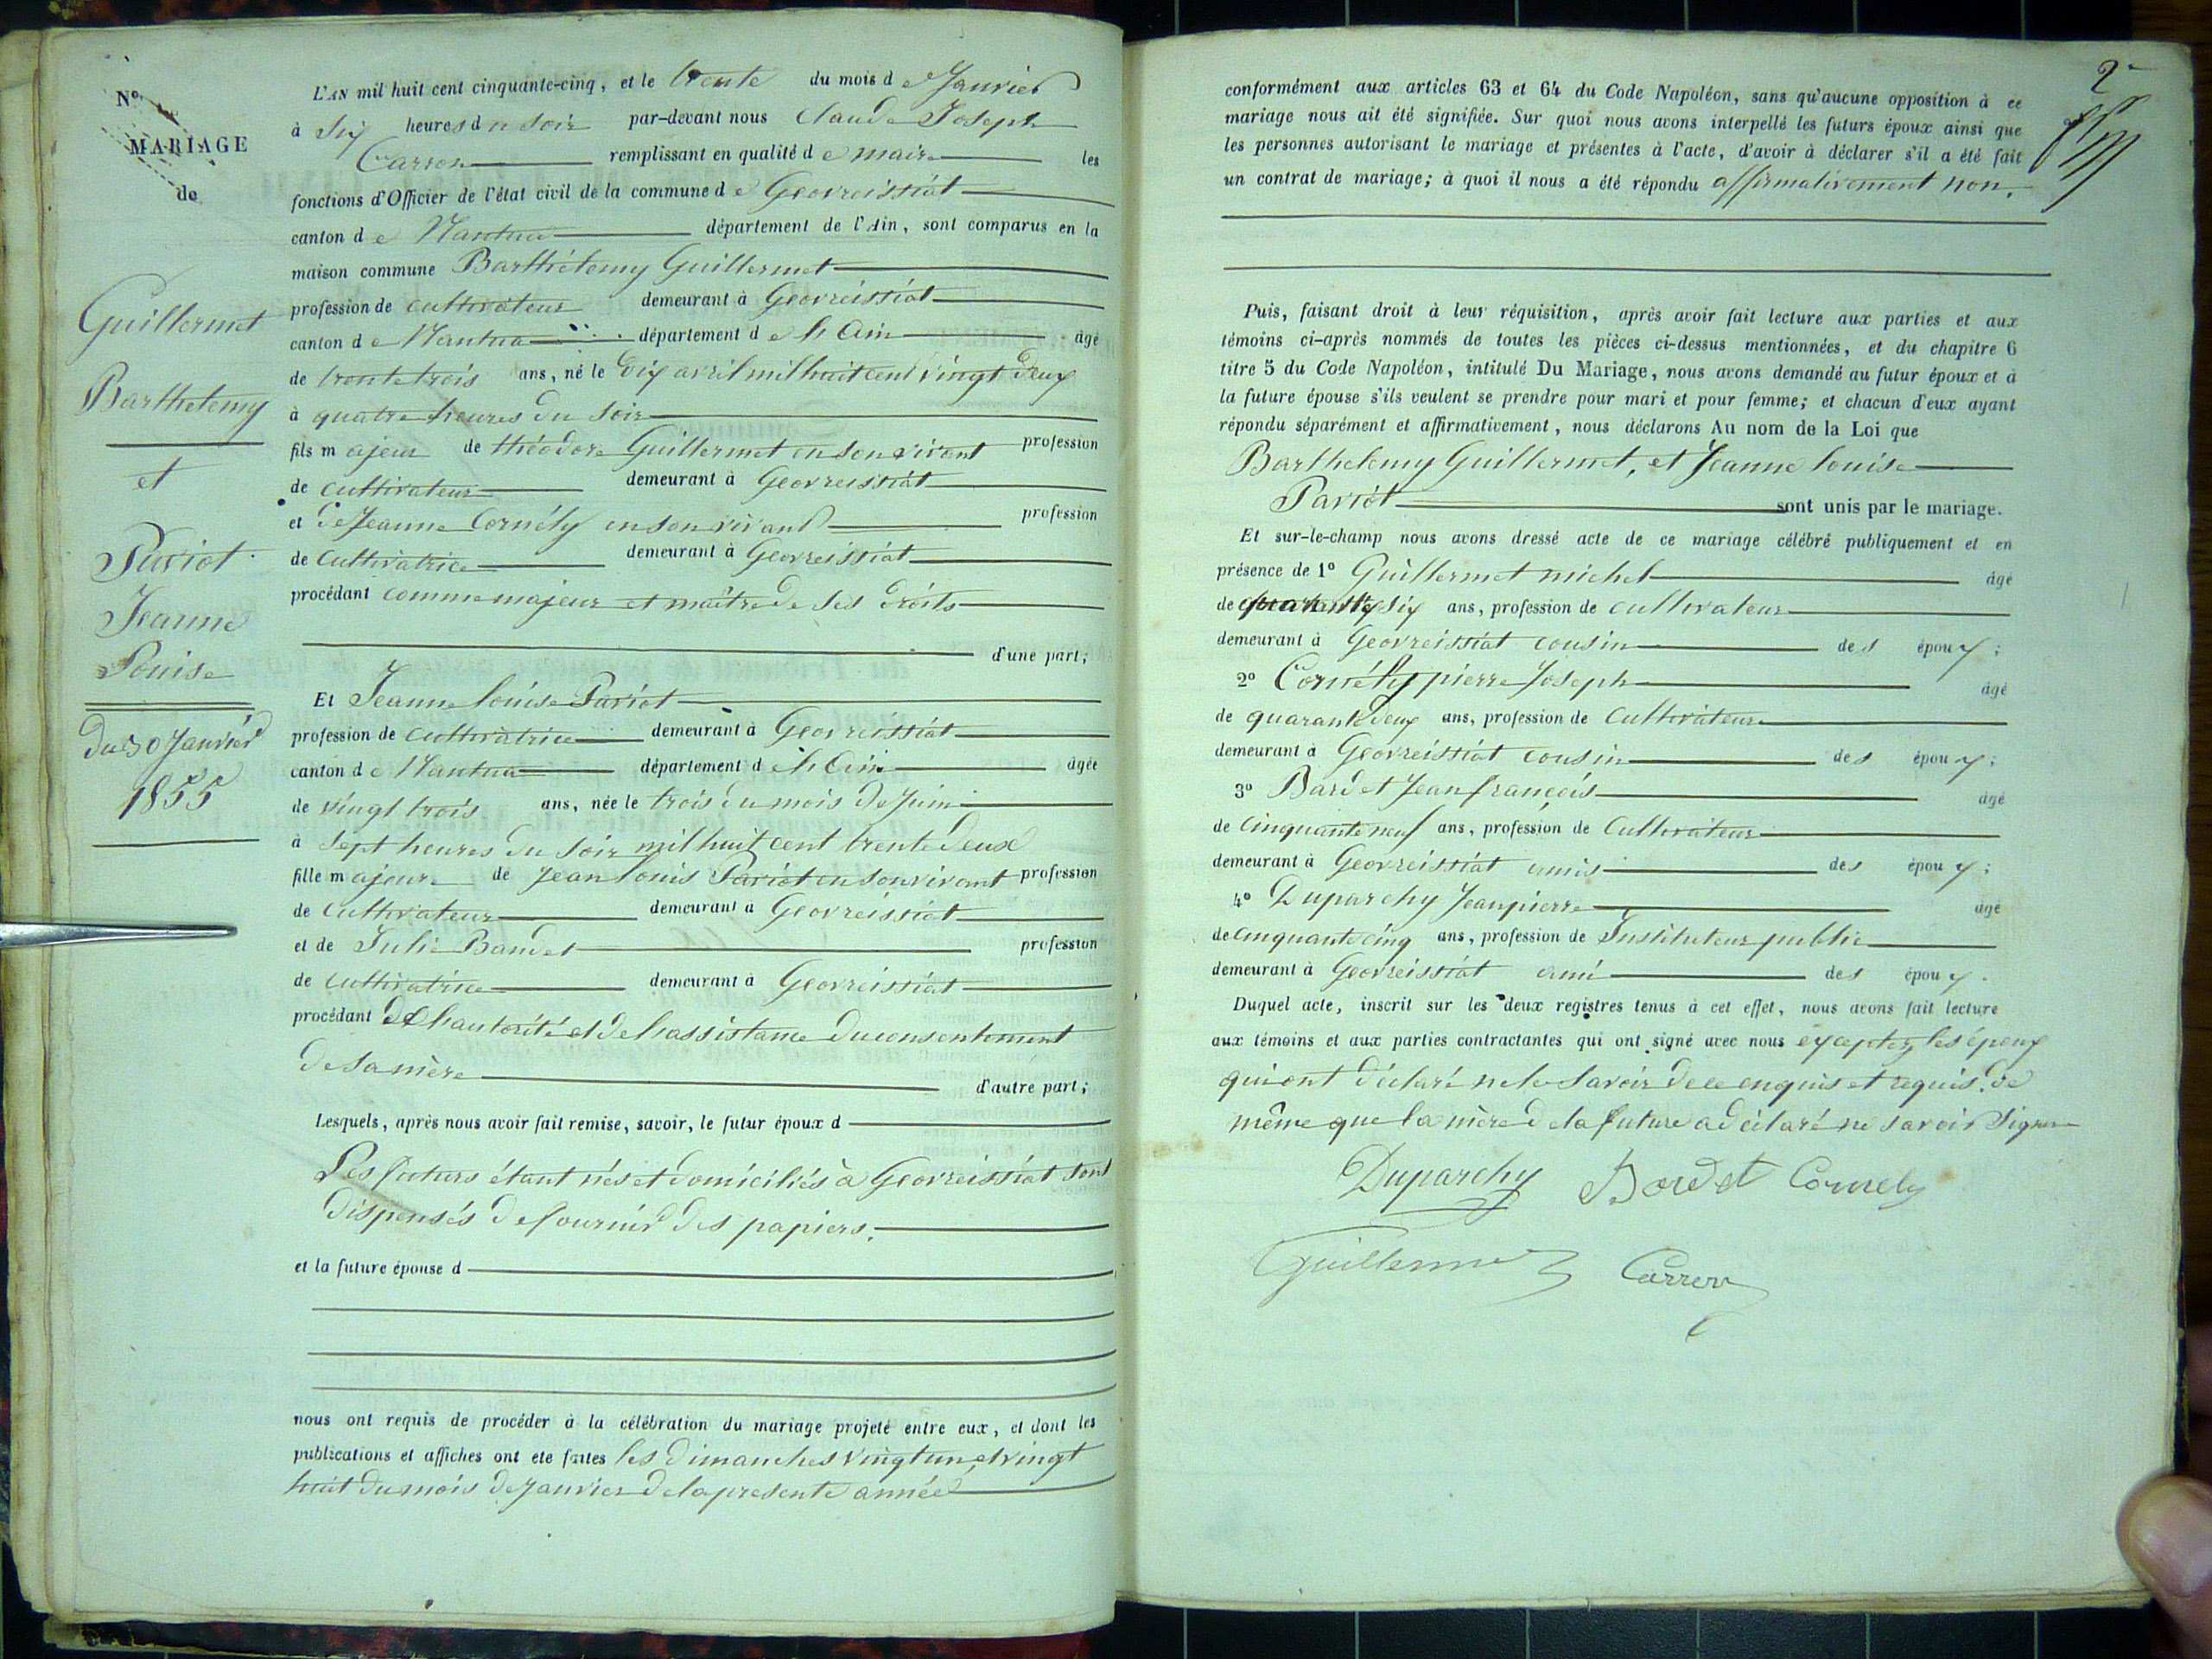 N°
MARIAGE
de
Guillermet
Barthelemy
et
Pariot
Jeanne
Louise
du 30 Janvier
1855
L'AN mil huit cent cinquante-cinq, et le trente du mois de Janvier
à six heures du soir par-devant nous Claude Joseph
Carron remplissant en qualité de maire les
fonctions d'Officier de l'état civil de la commune de Geovreissiat
canton de Nantua département de l'Ain, sont comparus en la
maison commune Barthélemy Guillermet
profession de cultivateur demeurant à Geovreissiat
canton de Nantua département de l'Ain âgé
de trente trois ans, né le dix avril mil huit cent vingt deux
à quatre heures du soir
fils majeur de théodore Guillermet en son vivant profession
de cultivateur demeurant à Geovreissiat
et de Jeanne Cornély en son vivant profession
de cultivatrice demeurant à Geovreissiat
procédant comme majeur et maître de ses droits
d'une part;
Et Jeanne Louise Pariot
profession de cultivatrice demeurant à Geovreissiat
canton de Nantua département de l'Ain âgée
de vingt trois ans, née le trois du mois de Juin
à sept heures du soir mil huit cent trente deux
fille majeure de Jean Louis Pariot en son vivant profession
de cultivateur demeurant à Geovreissiat
et de Julie profession
de cultivatrice demeurant à Geovreissiat
procédant de l'hautorité et de l'assistance du consentement
de sa mère d'autre part;
Lesquels, après nous avoir fait remise, savoir, le futur époux d
Les futurs étant nés et domiciliés à Geovreissiat sont
dispensés de fournir des papiers.
et la future épouse d
nous ont requis de procéder à la célébration du mariage projeté entre eux, et dont les
publications et affiches ont été faites les dimanches vingt un et vingt
huit du mois de Janvier de la presente année
2
conformément aux articles 63 et 64 du Code Napoléon, sans qu'aucune opposition à ce
mariage nous ait été signifiée. Sur quoi nous avons interpellé les futurs époux ainsi que
les personnes autorisant le mariage et présentes à l'acte, d'avoir à déclarer s'il a été fait
un contrat de mariage; à quoi il nous a été répondu affirmativement non.
Puis, faisant droit à leur réquisition, après avoir fait lecture aux parties et aux
témoins ci-après nommés de toutes les pièces ci-dessus mentionnées, et du chapitre 6
titre 5 du Code Napoléon, intitulé Du Mariage, nous avons demandé au futur époux et à
la future épouse s'ils veulent se prendre pour mari et pour femme; et chacun d'eux ayant
répondu séparément et affirmativement, nous déclarons Au nom de la Loi que
Barthelemy Guillermet, et Jeanne Louise
Pariot sont unis par le mariage.
Et sur-le-champ nous avons dressé acte de ce mariage célébré publiquement et en
présence de 1° Guillermet michel âgé
de quarante six ans, profession de cultivateur
demeurant à Geovreissiat cousin des époux;
2° Cornély pierre Joseph âgé
de quarante deux ans, profession de Cultivateur
demeurant à Geovreissiat cousin des époux;
3° Bardet Jean françois âgé
de cinquante neuf ans, profession de Cultivateur
demeurant à Geovreissiat amis des époux;
4° Duparchy Jean pierre âgé
de cinquante cinq ans, profession de Instituteur public
demeurant à Geovreissiat ami des époux.
Duquel acte, inscrit sur les deux registres tenus à cet effet, nous avons fait lecture
aux témoins et aux parties contractantes qui ont signé avec nous exceptez les époux
qui ont déclaré ne le savoir de ce enquis et requis. de
même que la mère de la future a déclaré ne savoir signer
Duparchy Bordet Cornely
Guillermet Carron